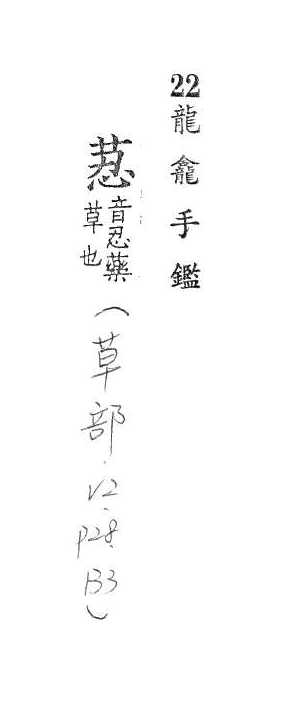 22龍龕手鑑
荵音忍藥
草也
(草部.V2.P28.B3)